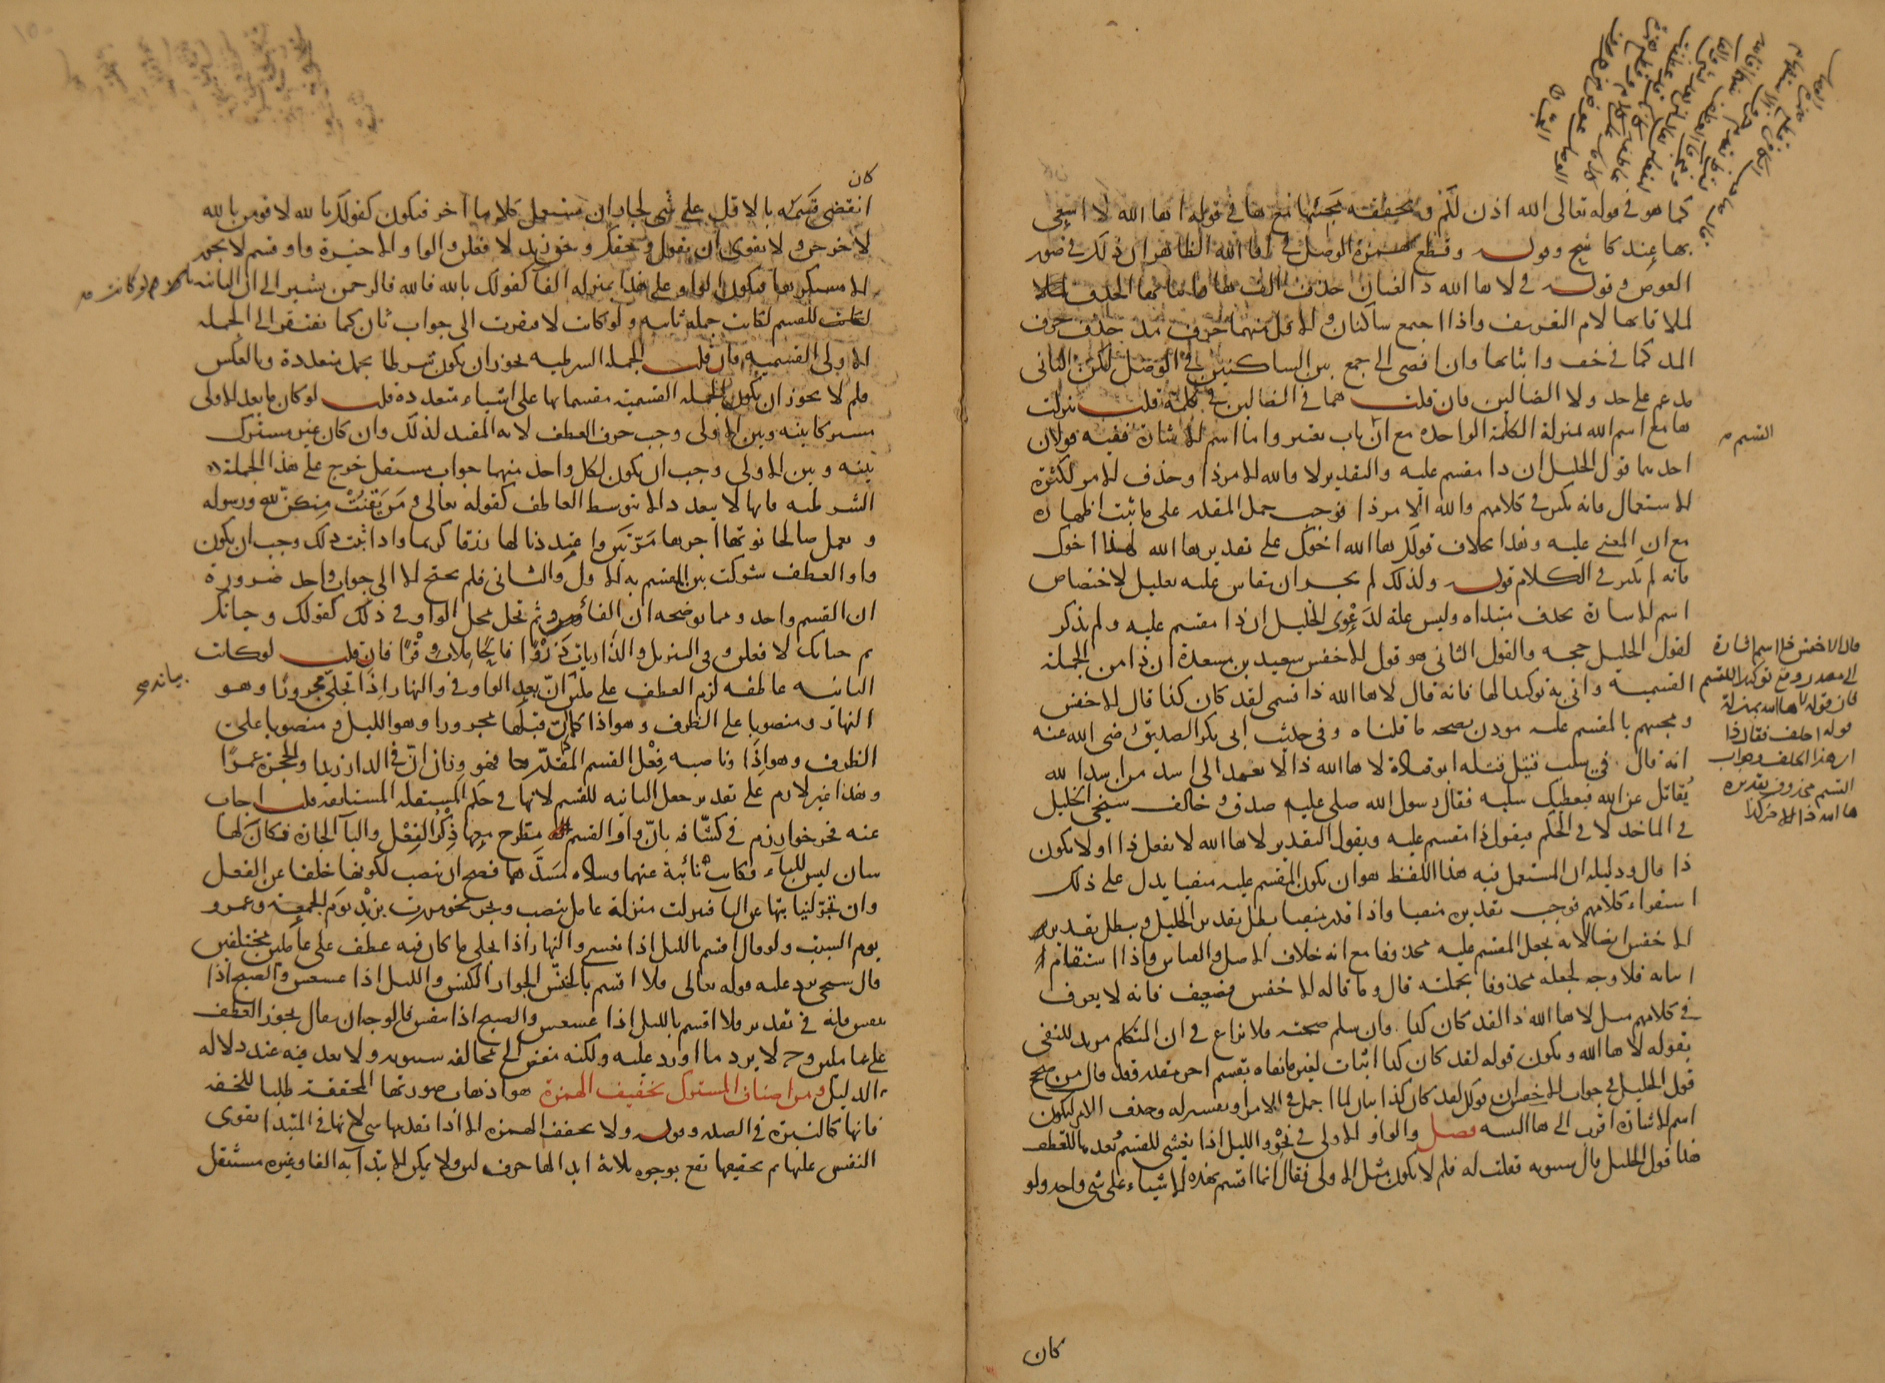 كما هو في قوله تعالى الله اذن لكم وتخفيفه نحيتها مع ها في قوله ها الله لا
بها عند كاشح وقوله وقطع همزة الوصل في افا الله الظاهر ان ذلك في صور
العوض وقوله في لا ها الله ذا لغتان حذف الف ها
لملاقاتها لام التعريف واذا اجتمع ساكنان والاول منهما حرف مد حذف حرف
المد كما في خف واثباتها وان افضى الى جمع بين الساكنين في الوصل لكن الثاني
مدغم على حد ولا الضالين فان قلت هما في الضالين في كلمة قلت نزلت
ها مع اسم الله منزلة الكلمة الواحدة مع ان باب واما اسم الاشارة ففيه قولان
احدهما قول الخليل ان ذا مقسم عليه والتقدير لا والله للامر ذا وحذف الامر لكثرة
الاستعمال فانه يكثر في كلامهم والله الامر ذا فوجب حمل المقدر على ما ثبت اظهاره
مع ان المعنى عليه وهذا بخلاف قولك ها الله اخوك على تقدير ها الله لهذا اخوك
فانه لم يكثر في الكلام قوله ولذلك لم يجز ان يقاس عليه تعليل لاختصاص
اسم الاشارة بحذف مبتداه وليس علة لدعوى الخليل ان ذا مقسم عليه ولم يذكر
لقول الخليل حجة والقول الثاني هو قول الاخفش سعيد بن مسعدة ان ذا من الجملة
القسمية واتي به توكيدا لها فانه قال لا ها الله ذا قسمي لقد كان كذا قال الاخفش
ومجيئهم بالمقسم عليه موذن بصحة ما قلناه وفي حديث ابي بكر الصديق رضي الله عنه
انه قال في سلب قتيل قتله ابو قتادة لا ها الله ذا لا يعمد الى اسد من اسد الله
يقاتل عن الله فيعطيك سلبه فقال رسول الله صلى عليه صدق وخالف شيخي الخليل
في الماخذ لا في الحكم فيقول ذا مقسم عليه ويقول التقدير لا ها الله لا يفعل ذا او لا يكون
ذا قال ودليله ان المستعمل فيه هذا اللفظ هو ان يكون المقسم عليه منفيا يدل على ذلك
استقراء كلامهم فوجب تقديره منفيا واذا قدر منفيا بطل تقدير الخليل وبطل تقدير
الاخفش ايضا لانه يجعل المقسم عليه محذوفا مع انه خلاف الاصل والقياس واذا استقام
اثباته فلا وجه لجعله محذوفا بجملته قال وما قاله الاخفش فضعيف فانه لا يعرف
في كلامهم مثل لا ها الله ذا لقد كان كذا وان سلم صحته فلا نزاع في ان المتكلم مريد للنفي
بقوله لا ها الله ويكون قوله لقد كان كذا اثبات لغير ما نفاه بقسم اخر مقدر فقد قال من صحح
قول الخليل في جواب الاخفش ان قولك لقد كان كذا بيان لما اجمل في الامر وتفسير له وحذف الامر ليكون
اسم الاشارة اقرب الى ها التنبيه فصل والواو الاولى في نحو والليل اذا يغشى للقسم وبعد ها للعطف
هذا قول الخليل قال سيبويه فقلت له فلم لا يكون مثل الاولى فقال انما اقسم بهذه الاشياء على شي واحد ولو
كان
القسم
قال الاخفش ذا اسم اشارة
الى مصدر وقع توكيدا للقسم
فان قوله لا ها الله بمنزلة
قوله احلف فقال ذا
اي هذا الحلف وجواب
القسم محذوف تقديره
ها الله ذا للامر كذا
كان
انقضى قسمه بالاول على شي لجاز ان يستعمل كلاما اخر فيكون كقولك بالله لا قومن بالله
لاخرجن ولا يقوى ان يقول وحقك وحق زيد لا فعلن والواو الاخيرة واو قسم لا يجوز
الا مستكرها فيكون الواو على هذا بمنزلة الفا كقولك بالله فالله فالرحمن يشير الى ان الثانية
لو كانت للقسم لكانت جملة ثانية ولو كانت لافتقرت الى جواب ثان كما تفتقر الى الجملة
الاولى القسمية فان قلت الجملة الشرطية يجوز ان يكون شرطها بجمل متعددة وبالعكس
فلم لا يجوز ان يكون الجملة القسمية مقسما بها على اشياء متعددة قلت لو كان ما بعد الاولى
مشتركا بينه وبين الاولى وجب حرف العطف لانه المفيد لذلك وان كان غير مشترك
بينه وبين الاولى وجب ان يكون لكل واحد منهما جواب مستقل خرج على هذا الجملة
الشرطية فانها لا يتعدد الا بتوسط العاطف كقوله تعالى ومن يقنت منكن لله ورسوله
وتعمل صالحا نوتها اجرها مرتين واعتدنا لها رزقا كريما واذا ثبت ذلك وجب ان يكون
واو العطف شركت بين المقسم به الاول والثاني فلم يحتج الا الى جواب واحد ضرورة
ان القسم واحد ومما يوضحه ان الفا وثم تحل محل الواو في ذلك كقولك وحياتك
ثم حياتك لا فعلن وفي التنزيل والذاريات ذروا فالحاملات وقرا فان قلت لو كانت
الثانية عاطفة لزم العطف على عاملين ان بعد الواو في والنهار اذا تجلى مجرورا وهو
النهار ومنصوبا على الظرف وهو اذا كما ان قبلها مجرورا وهو الليل ومنصوبا على
الظرف وهو اذا وناصبه فعل القسم المقدر فهو وزان ان في الدار زيدا والحجرة عمرا
وهذا غير لازم على تقدير جعل الثانية للقسم لانها في حكم المستقلة المستانفة قلت اجاب
عنه فخر خوارزم في كشافه بان واو القسم مطرح معها ذكر الفعل والبا الجارة فكان لها
شان ليس للباء فكانت نائبة عنهما وسادة مسدهما فصح ان ينصب لكونها خلفا عن الفعل
وان تجر لنيابتها عن البا فنزلت منزلة عامل ينصب ويجر نحو مررت بزيد يوم الجمعة وعمرو
يوم السبت ولو قال اقسم بالليل اذا يغشى والنهار اذا تجلى ما كان فيه عطف على عاملين مختلفين
قال شيخي يرد عليه قوله تعالى فلا اقسم بالخنس الجوار الكنس والليل اذا عسعس والصبح اذا
تنفس فانه في تقدير فلا اقسم بالليل اذا عسعس والصبح اذا تنفس فالوجه ان يقال بجواز العطف
على عاملين وح لا يرد ما اورد عليه ولكنه مفض الى مخالفة سيبويه ولا بعد فيه عند دلالة
الدليل ومن اصناف المشترك تخفيف الهمزة هو اذهاب صورتها المحققة طلبا للخفة
فانها كالنبرة في الصدر وقوله ولا تخفف الهمزة الا اذا تقدمها شي لانها في المبتدا تقوى
النفس عليها ثم تخفيفها يقع بوجوه ثلاثة ابدالها حرف لين ولا يمكن الابتداء به الفا وغيره مستثقل